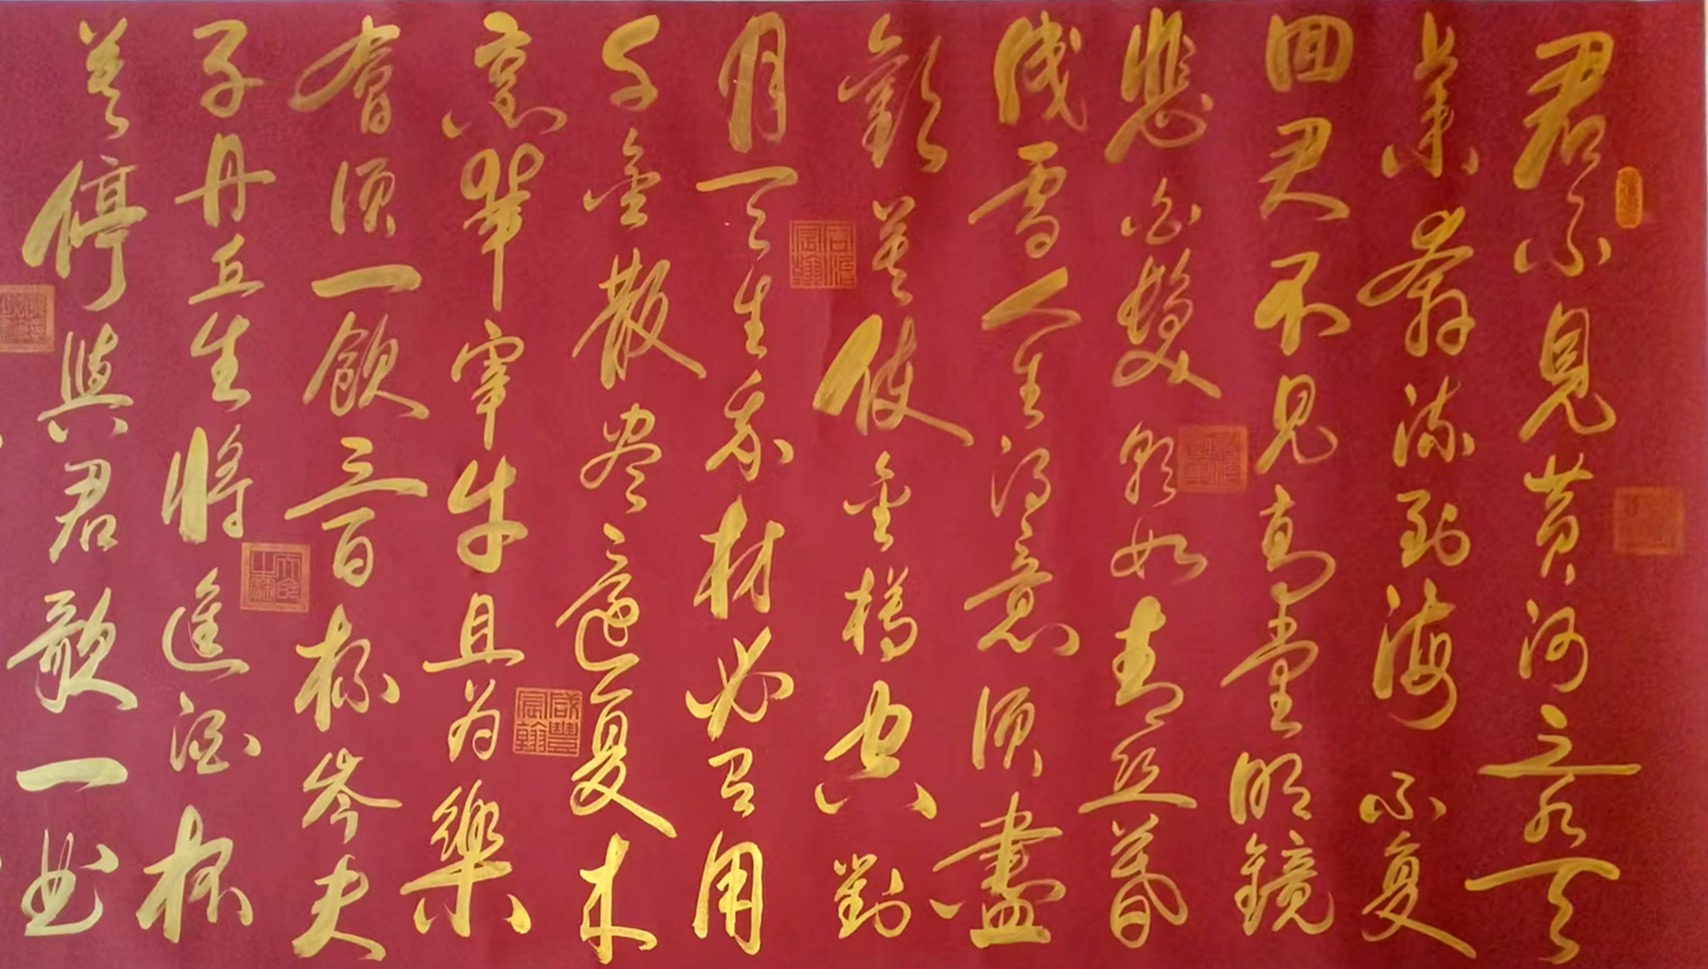 君不見黃河之水天
上来奔流到海不复
回君不見高堂明鏡
悲白髮朝如青丝暮
成雪人生得意須盡
歡莫使金樽空對
月天生我材必有用
千金散尽還复来
烹羊宰牛且为樂
會須一飲三百杯岑夫
子丹丘生將進酒杯
莫停與君歌一曲